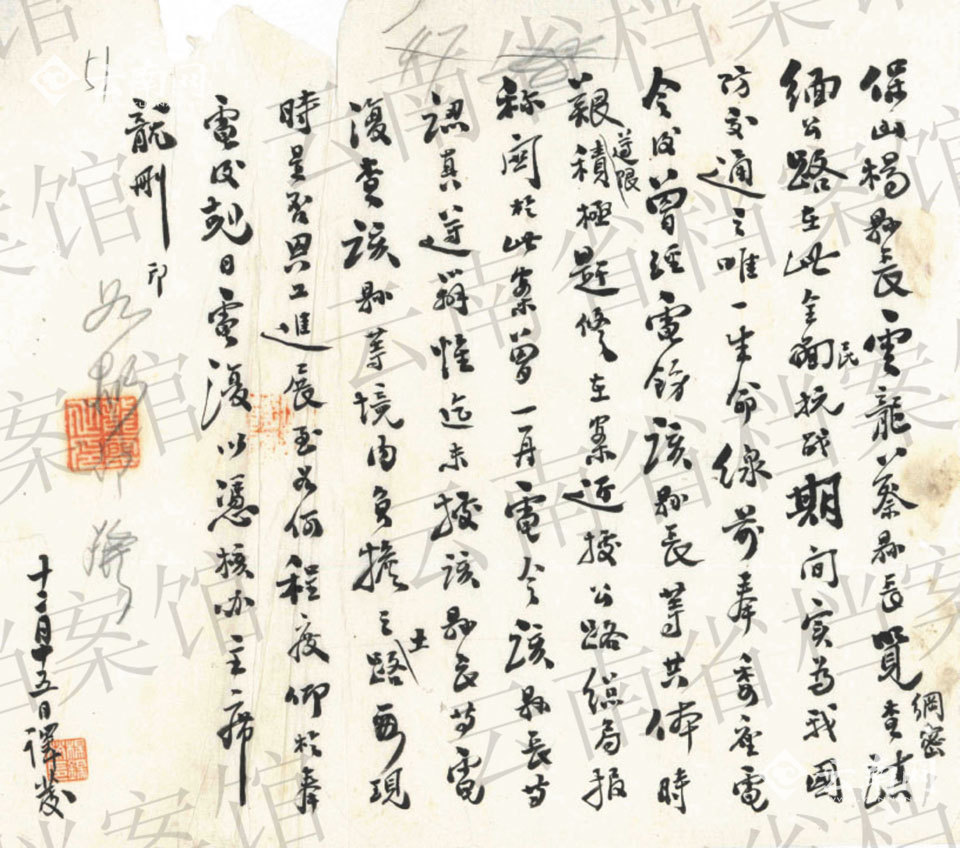 保山楊縣長雲龍蔡縣長覽綱密查滇
緬公路在此全民面抗战期间实为我國
防交通之唯一生命線前奉委座電
令後曾經電飭該縣長等共体時
艱遵限積極趕修在案近據公路總局报
称關於此案曾一再電令該縣長等
認真遵辦惟迄未據該縣長等電
復查該縣等境内負擔之土路面現
時是否興工進展至若何程度仰於奉
電後剋日電復以憑核办主席
龍刪印
十二月十五日譯發
51
云南省档案馆